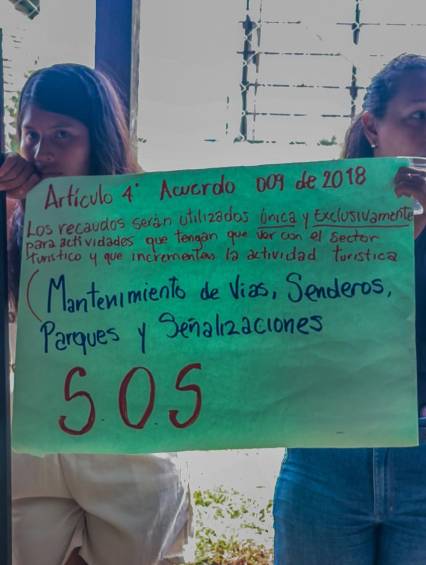 Artículo 4° Acuerdo 009 de 2018
Los recaudos serán utilizados única y Exclusivamente
para actividades que tengan que Ver con el Sector
turístico y que incrementen la actividad turística
(Mantenimiento de Vías, Senderos,
Parques y Señalizaciones
S.O.S